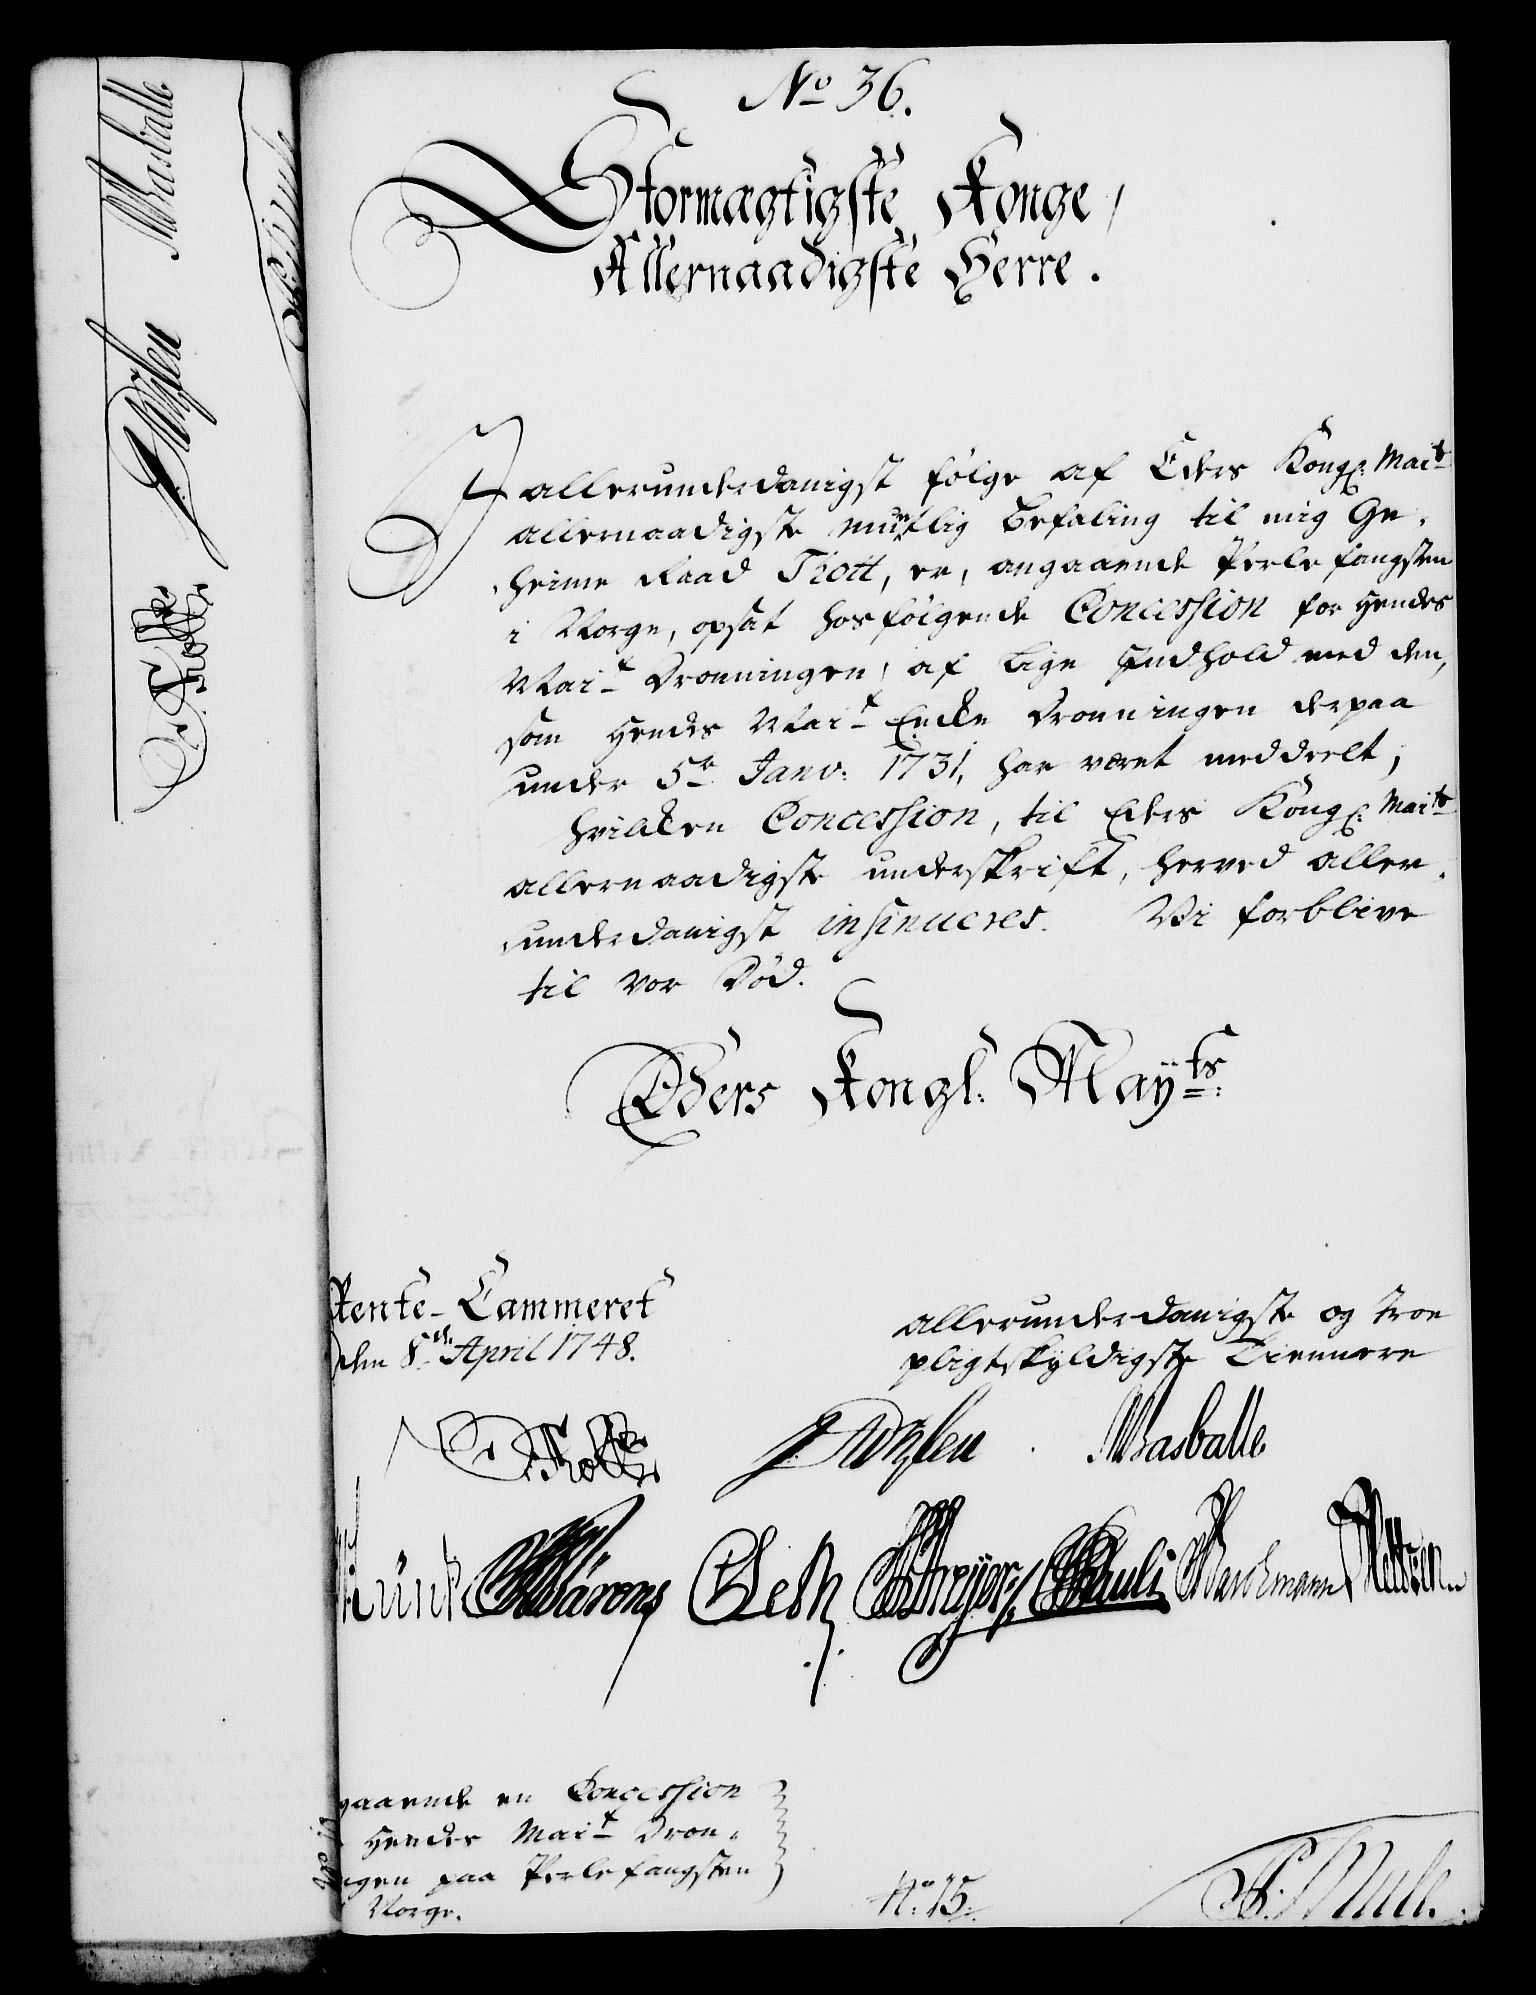 No 36.
Stormægtigste Konge,
Allernaadigste Herre.
I allerunderdanigst følge af Eders Kongl: Maits
allernaadigste mundtlig Befaling til mig Ge-
heime Raad Tiott, er, angaaende Perle fangsten
i Norge, opsat hosfølgende Concession for Hendes
Mait Dronningen, af lige Indhold med den,
som Hendes Mait Encke Dronningen derpaa
under 5te Janv: 1731, har været meddeelt;
hvilcken Concession, til Eders Kongl: Maits
allernaadigste underskrift, herved aller-
underdanigst insinueres. Vi forblive
til vor Død.
Eders Kongl: Mayts:
Rente-Cammeret
den 8de April 1748.
allerunderdanigste og troe
pligtskyldigste Tiennere
Masballe
gaaende en Concession
Hendes Mait Dron-
ngen paa Perlefangsten
Norge.
No: 15.